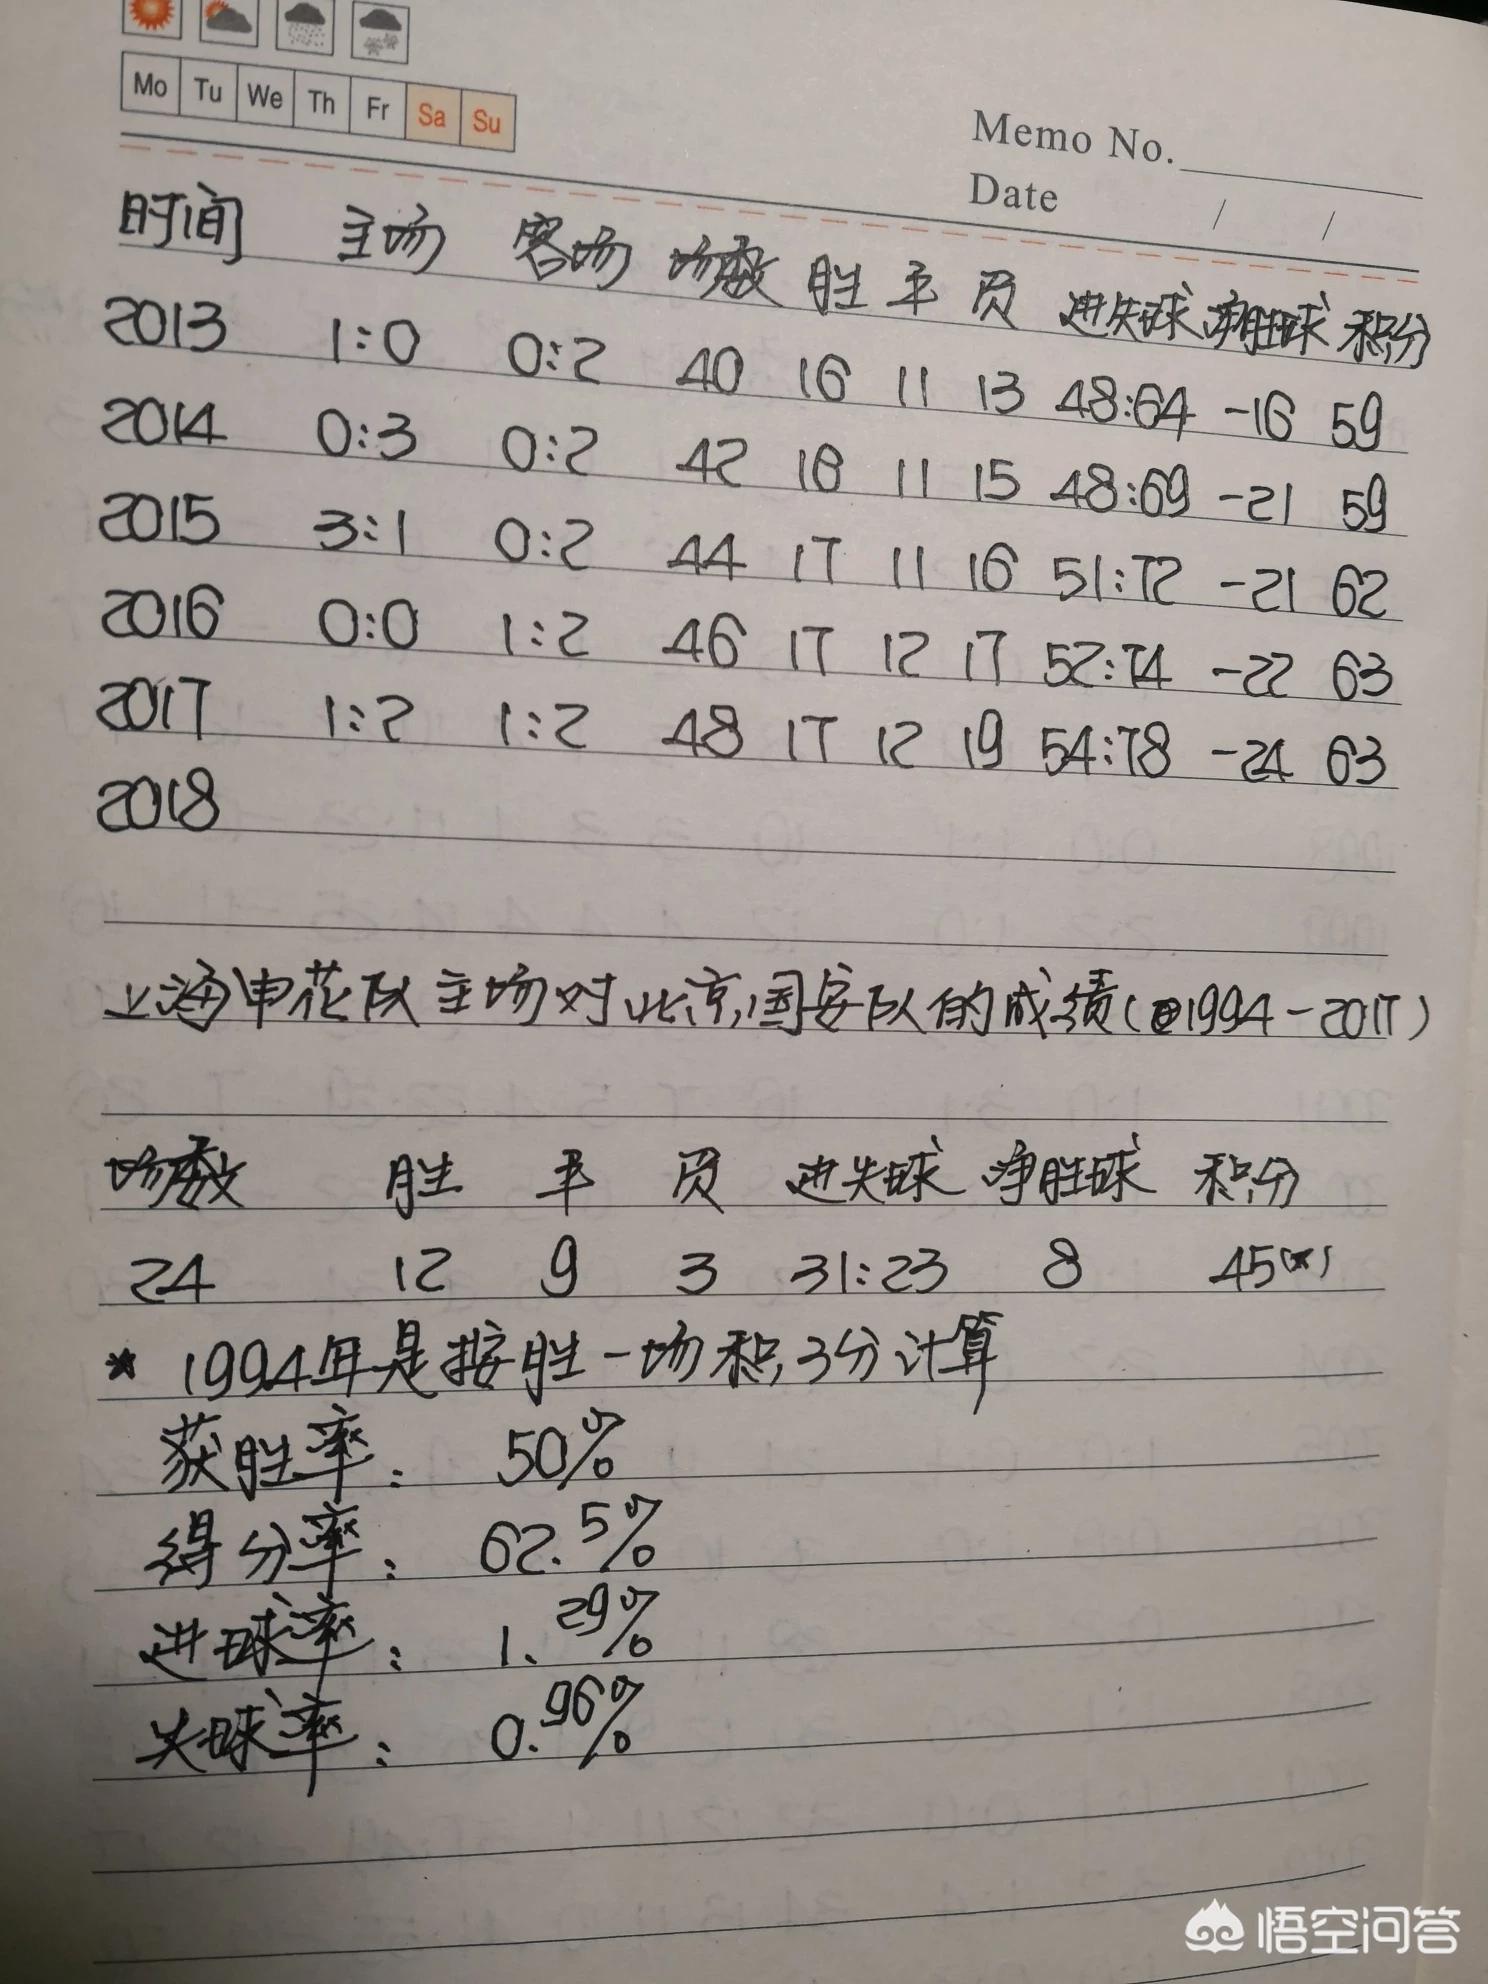 Mo Tu We Th Fr Sa Su
Memo No.
Date / /
时间 主场 客场 场数 胜 平 负 进失球 净胜球 积分
2013 1:0 0:2 40 16 11 13 48:64 -16 59
2014 0:3 0:2 42 16 11 15 48:69 -21 59
2015 3:1 0:2 44 17 11 16 51:72 -21 62
2016 0:0 1:2 46 17 12 17 52:74 -22 63
2017 1:2 1:2 48 17 12 19 54:78 -24 63
2018
上海申花队主场对北京国安队的成绩(1994-2017)
场数 胜 平 负 进失球 净胜球 积分
24 12 9 3 31:23 8 45(*)
* 1994年是按胜一场积3分计算
获胜率: 50%
得分率: 62.5%
进球率: 1.29%
失球率: 0.96%
悟空问答